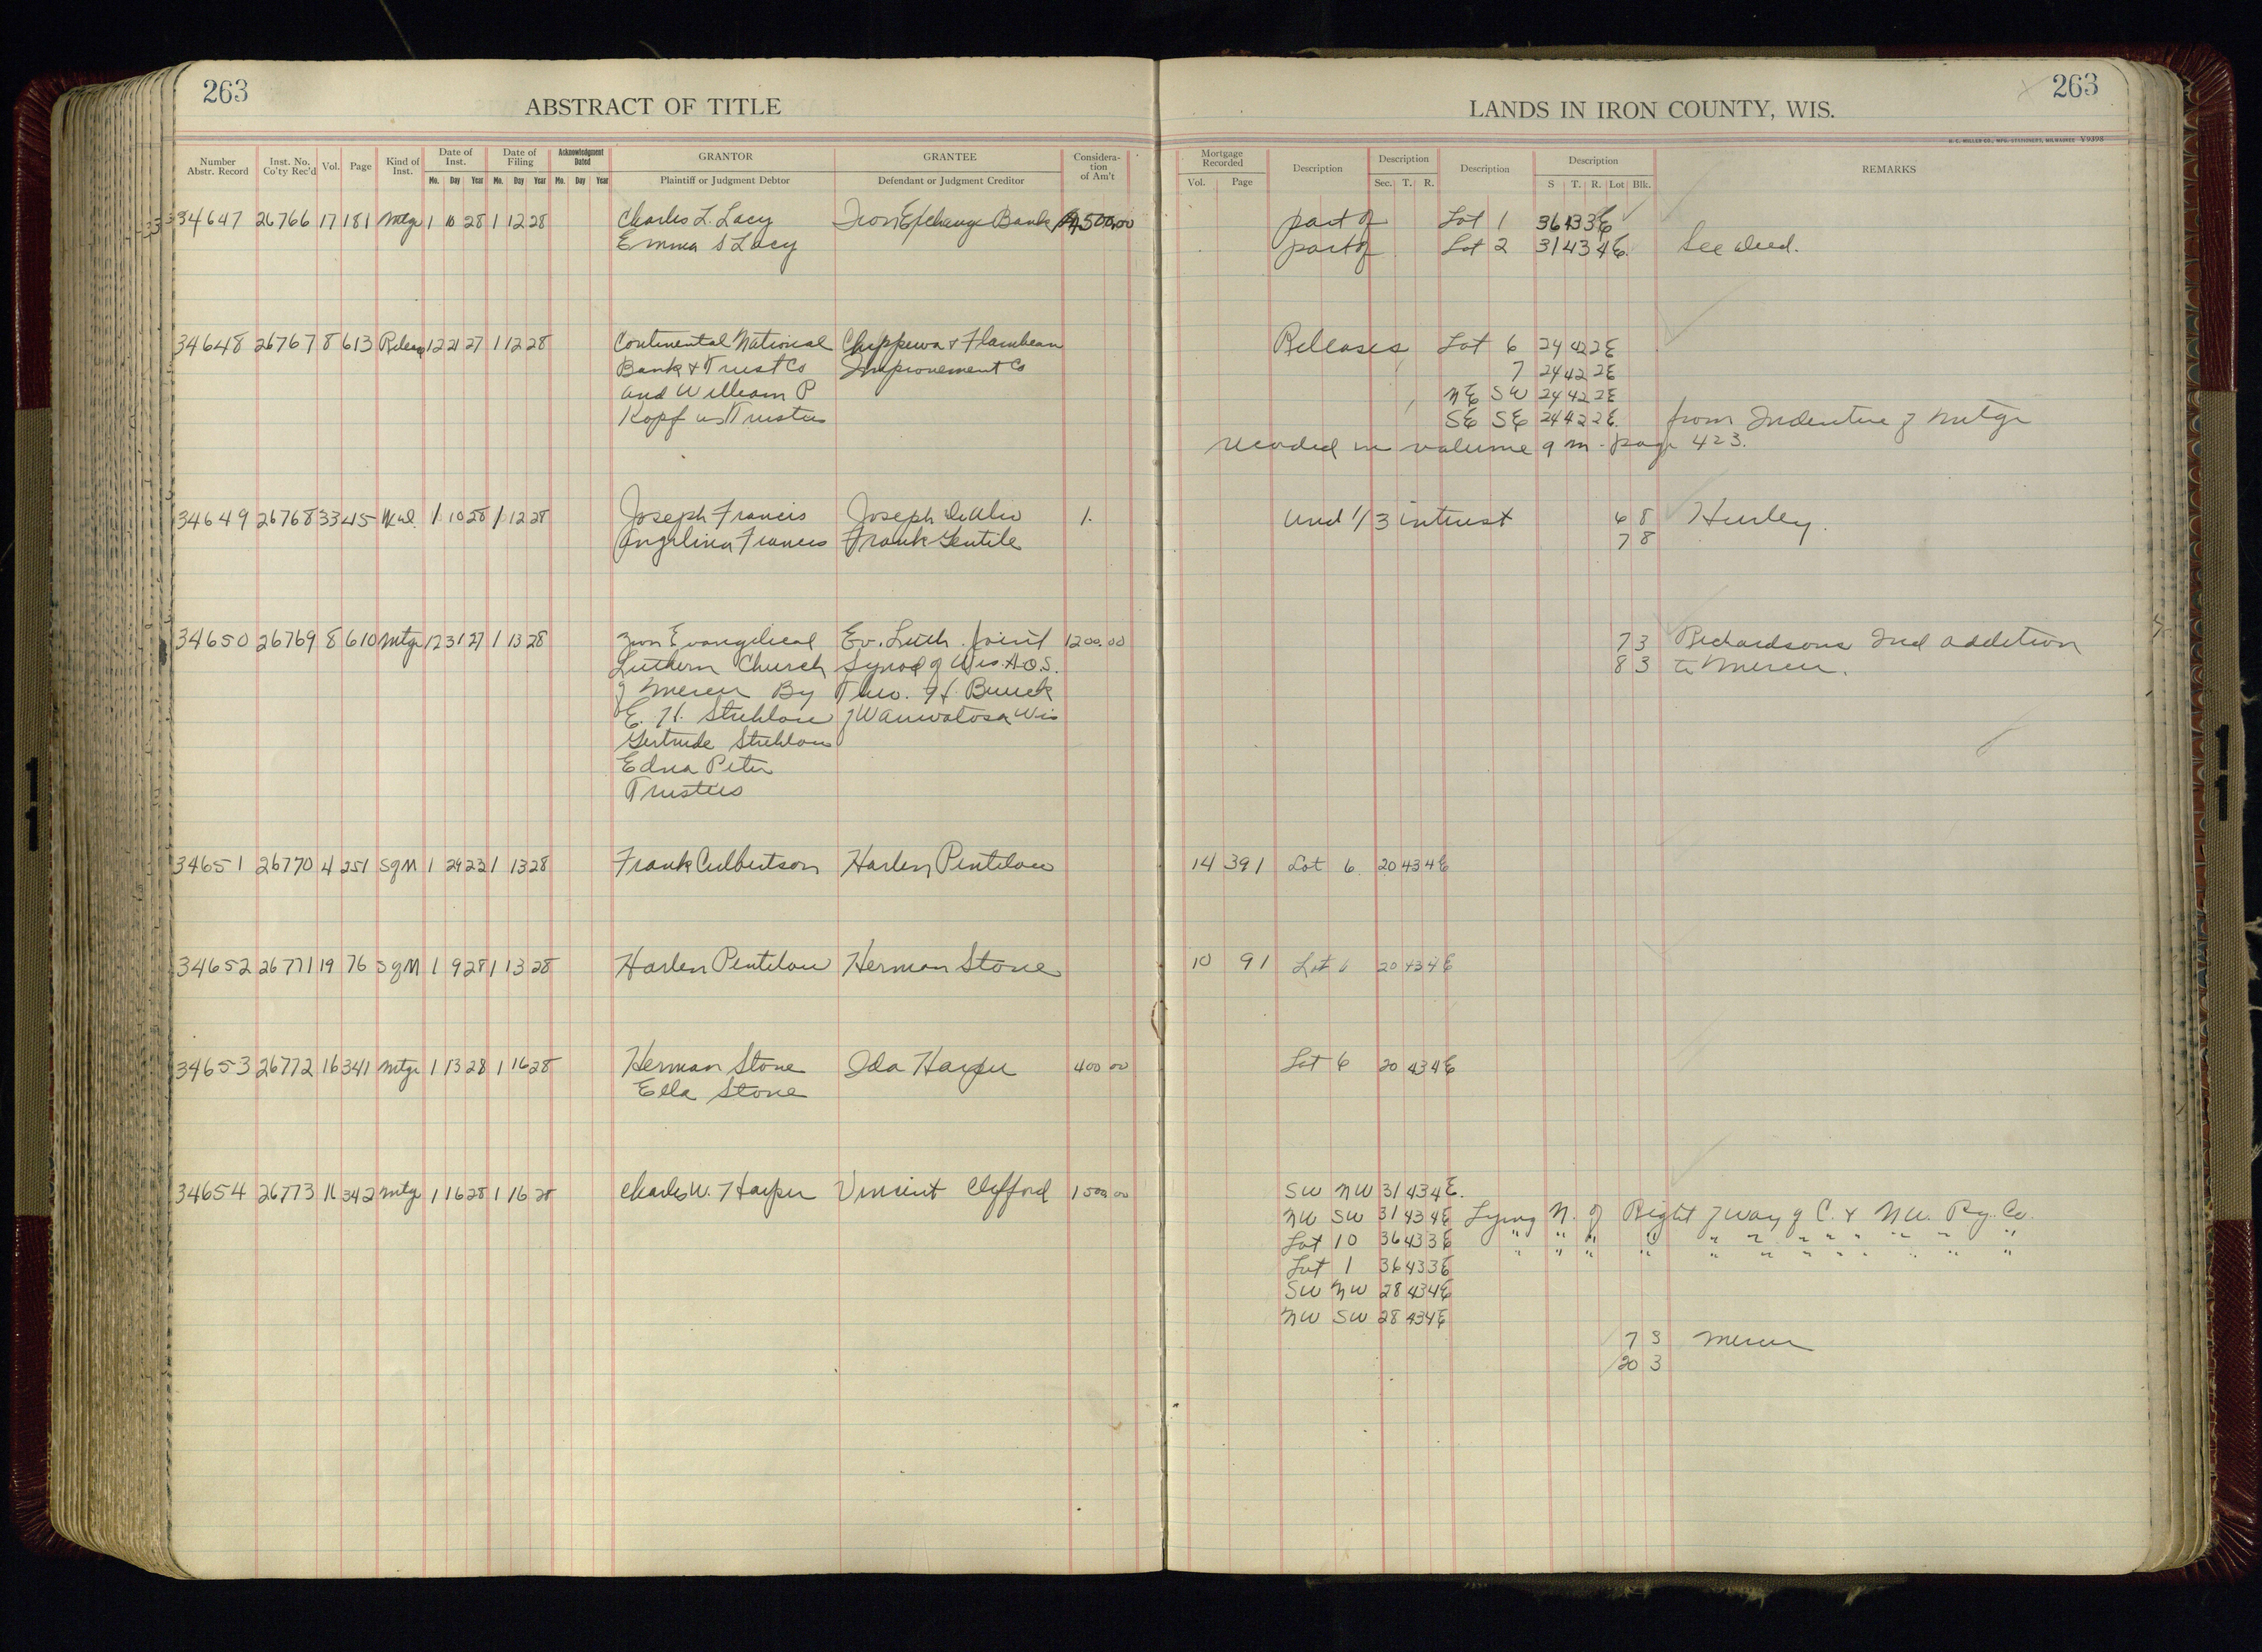 263
ABSTRACT OF TITLE
LANDS IN IRON COUNTY, WIS.
263
H. C. MILLER CO., MFG. STATIONERS, MILWAUKEE V9398
Number Abstr. Record Inst. No. Co'ty Rec'd Vol. Page Kind of Inst. Date of Inst. Mo. Day Year Date of Filing Mo. Day Year Acknowledgment Dated Mo. Day Year GRANTOR Plaintiff or Judgment Debtor GRANTEE Defendant or Judgment Creditor Considera-tion of Am't
Mortgage Recorded Vol. Page Description Description Sec. T. R. Description Description S T. R. Lot Blk. REMARKS
34647 26766 17 181 Mtge 1 10 28 1 12 28 Charles L. Lacy Iron Exchange Bank 500.00 part of Lot 1 36 43 3E
Emma S Lacy part of Lot 2 31 43 4E. See deed.
34648 26767 8 613 Release 12 21 27 1 12 28 Continental National Chippewa & Flambeau Releases Lot 6 24 42 2E
Bank & Trust Co Improvement Co 7 24 42 2E
and William P NE SW 24 42 2E
Kopf as Trustee SE SE 24 42 2E from Indenture of Mtge
recorded in volume 9 M. page 423.
34649 26768 33 45 W.d. 1 10 28 1 12 28 Joseph Francis Joseph 1. und 1/3 interest 6 8 Hurley.
Angelina Francis Frank Gentile 7 8
34650 26769 8 610 Mtge 12 31 27 1 13 28 Zion Evangelical Ev. Luth. Joint 1200.00 7 3 Richardsons 2nd addition
Luthern Church Synod of Wis. A.O.S. 8 3 to Mercer.
of Mercer By Theo. H. Buuck
E. H. Strehlow of Wauwatosa Wis
Gertrude Strehlow
Edna Peter
Trustees
34651 26770 4 251 SgM 1 29 23 1 13 28 Frank Culbertson Harlen Pentelow 14 391 Lot 6. 20 43 4E
34652 26771 19 76 SgM 1 9 28 1 13 28 Harlen Pentelow Herman Stone 10 91 Lot 6 20 43 4E
34653 26772 16 341 Mtge 1 13 28 1 16 28 Herman Stone Ida Harper 400 00 Lot 6 20 43 4E
Ella Stone
34654 26773 16 342 Mtge 1 16 28 1 16 28 Charles W. Harper Vincent Clifford 1500 00 SW NW 31 43 4E.
NW SW 31 43 4E Lying N. of Right of Way of C. & N.W. Ry. Co.
Lot 10 36 43 3E " " " " " " " " " " " "
Lot 1 36 43 3E " " " " " " " " " " " "
SW NW 28 43 4E
NW SW 28 43 4E
7 3 Mercer
20 3